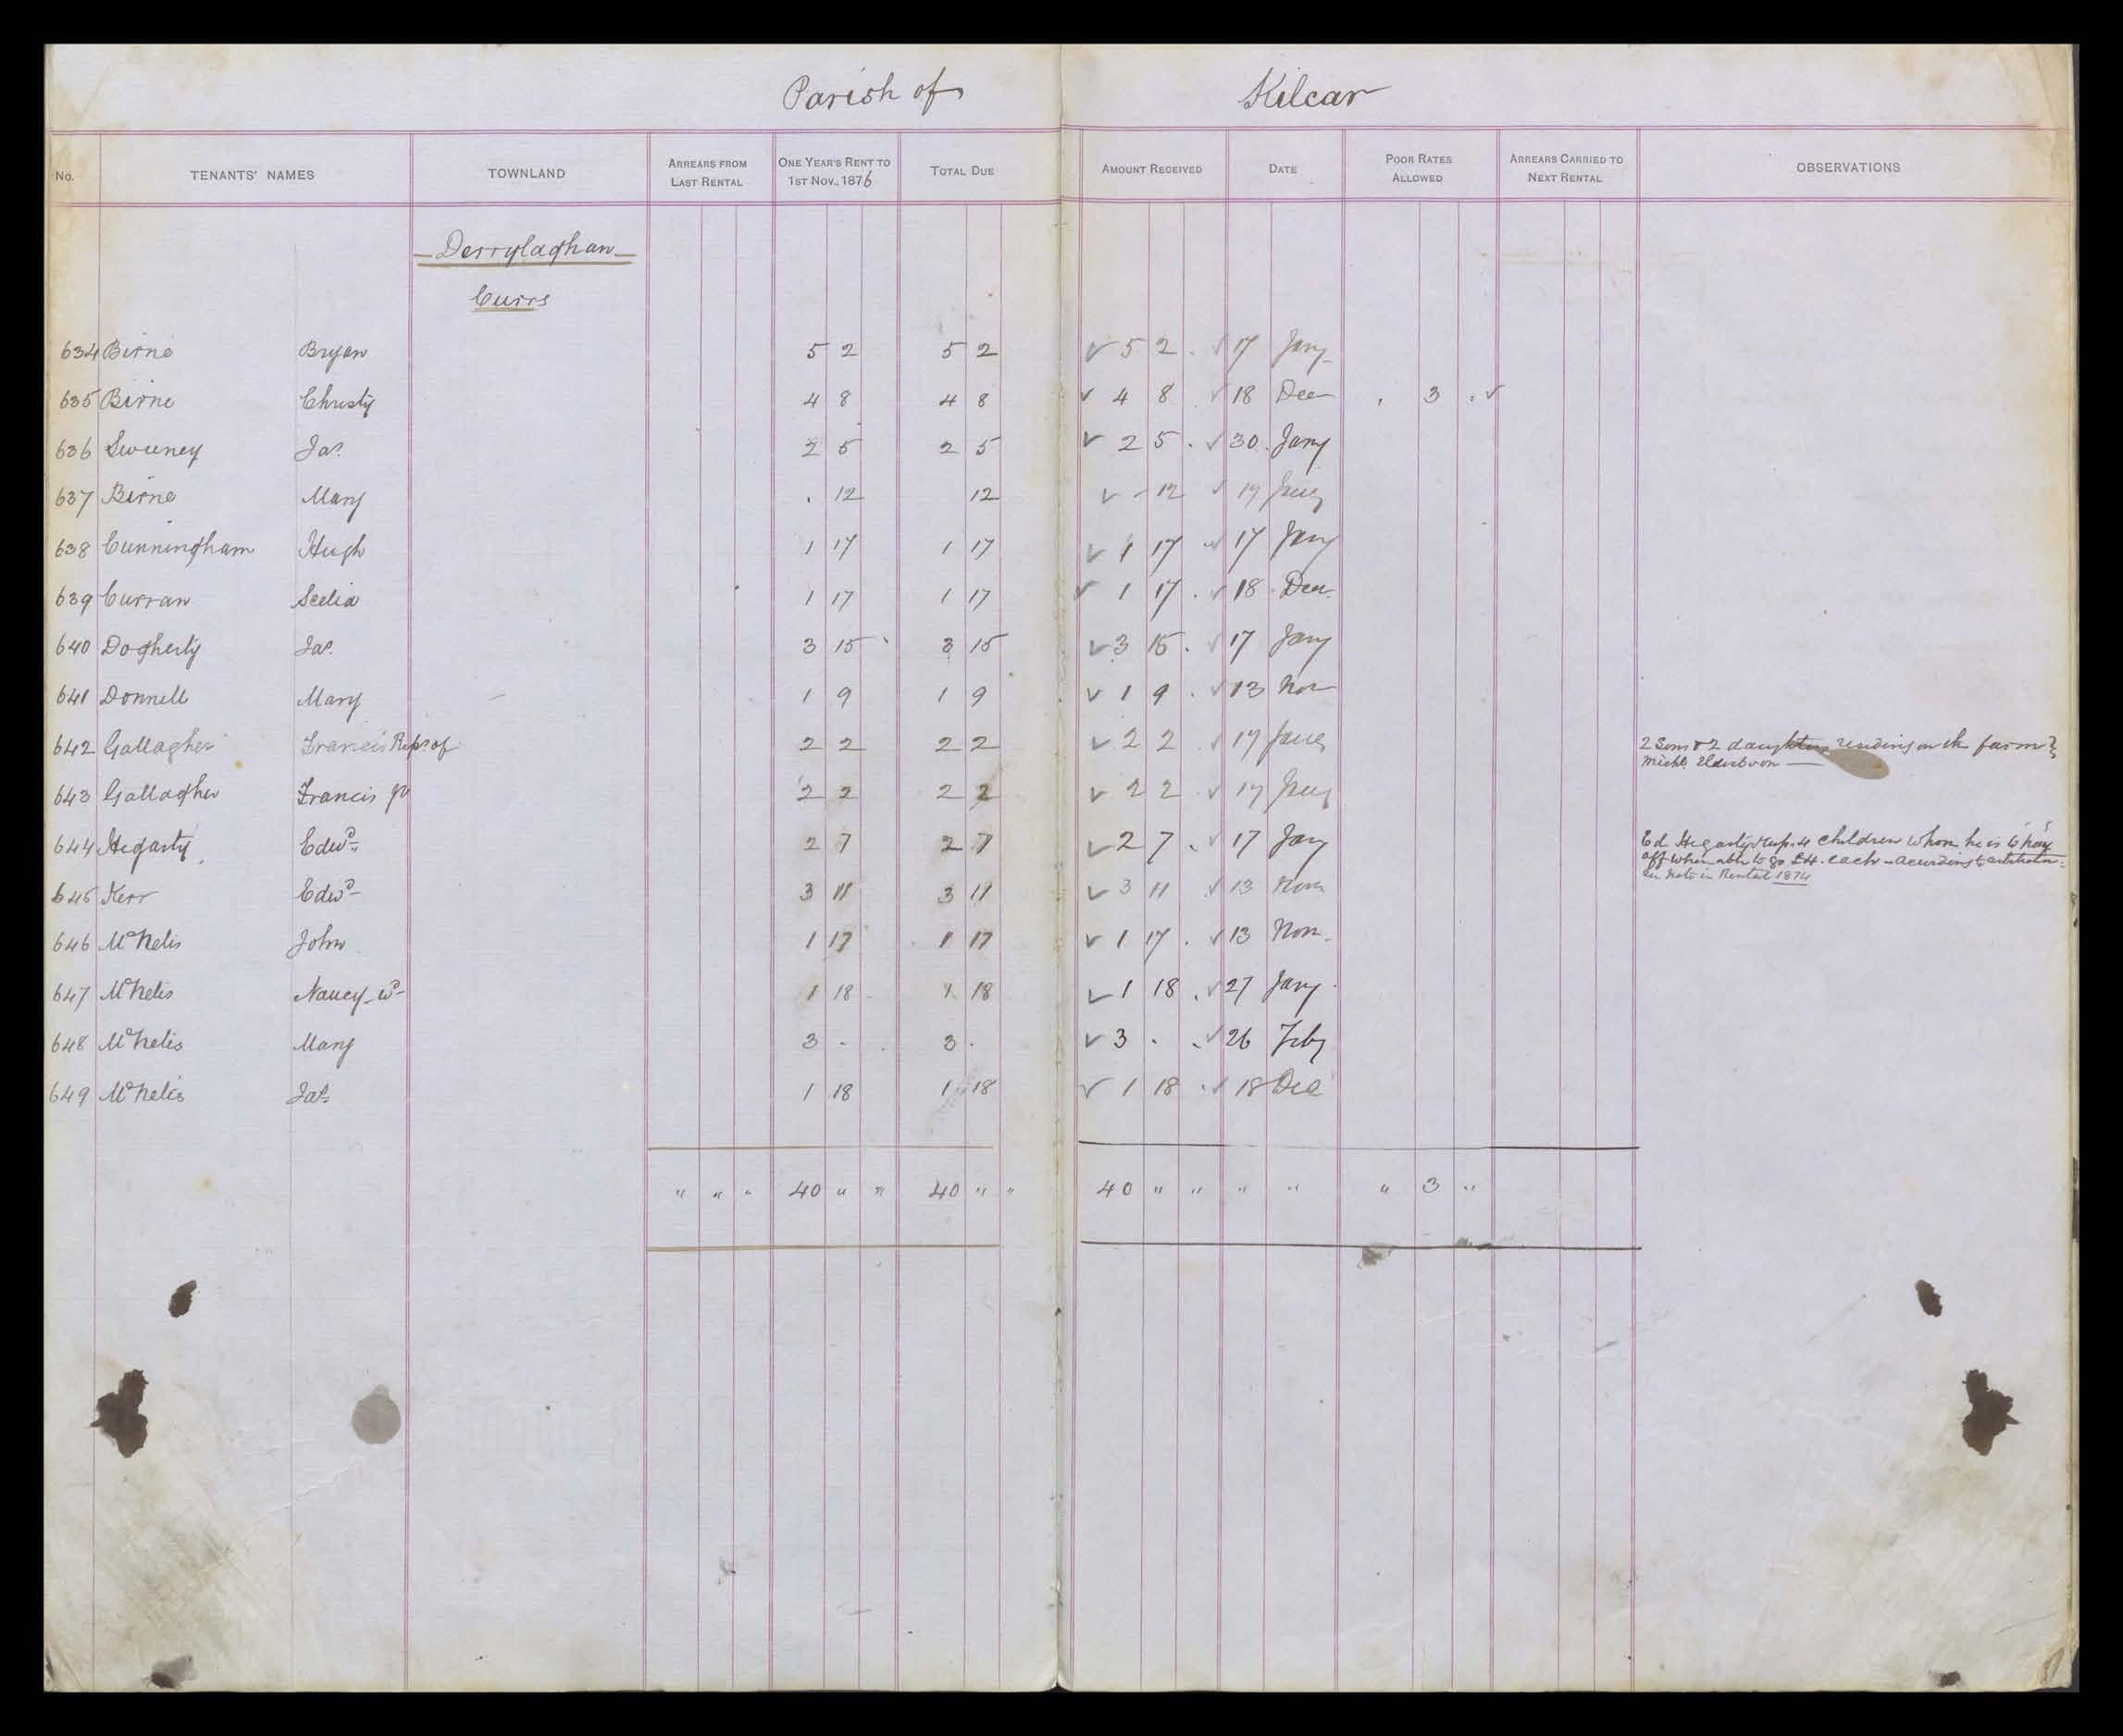 Parish of Kilcar
No. TENANTS' NAMES TOWNLAND ARREARS FROM LAST RENTAL ONE YEAR'S RENT TO 1ST NOV., 1876 TOTAL DUE AMOUNT RECEIVED DATE POOR RATES ALLOWED ARREARS CARRIED TO NEXT RENTAL OBSERVATIONS
Derrylaghan
Currs
634 Birne Bryan 5 2 5 2 ✓ 5 2 . ✓ 17 Jany
635 Birne Christy 4 8 4 8 ✓ 4 8 . ✓ 18 Decr . 3 . ✓
636 Sweeney Jas. 2 5 2 5 ✓ 2 5 . ✓ 30 Jany
637 Birne Mary . 12 12 ✓ - 12 ✓ 17 Jany
638 Cunningham Hugh 1 17 1 17 ✓ 1 17 ✓ 17 Jany
639 Curran Seelia 1 17 1 17 ✓ 1 17 . ✓ 18 Decr.
640 Dogherty Jas. 3 15 3 15 ✓ 3 15 . ✓ 17 Jany
641 Donnell Mary 1 9 1 9 ✓ 1 9 . ✓ 13 Nov
642 Gallagher Francis Reps. of 2 2 2 2 ✓ 2 2 . ✓ 17 Jany 2 Sons & 2 daughters residing on the farm
Michl. Eldest son
643 Gallagher Francis Jr 2 2 2 2 ✓ 2 2 . ✓ 17 Jany
644 Hegarty Edwd. 2 7 2 7 ✓ 2 7 . ✓ 17 Jany Ed. Hegarty 4 children whom he is to pay
off when able to go £4. each - according to
in Rental 1874
645 Kerr Edwd. 3 11 3 11 ✓ 3 11 ✓ 13 Nov
646 McNelis John 1 17 1 17 ✓ 1 17 . ✓ 13 Nov.
647 McNelis Nancy wd. 1 18 1 18 ✓ 1 18 . ✓ 27 Jany
648 McNelis Mary 3 . 3 . ✓ 3 . . ✓ 26 Feby
649 McNelis Jas. 1 18 1 18 ✓ 1 18 . ✓ 18 Dec
" " " 40 " " 40 " " 40 " " " " " 3 "